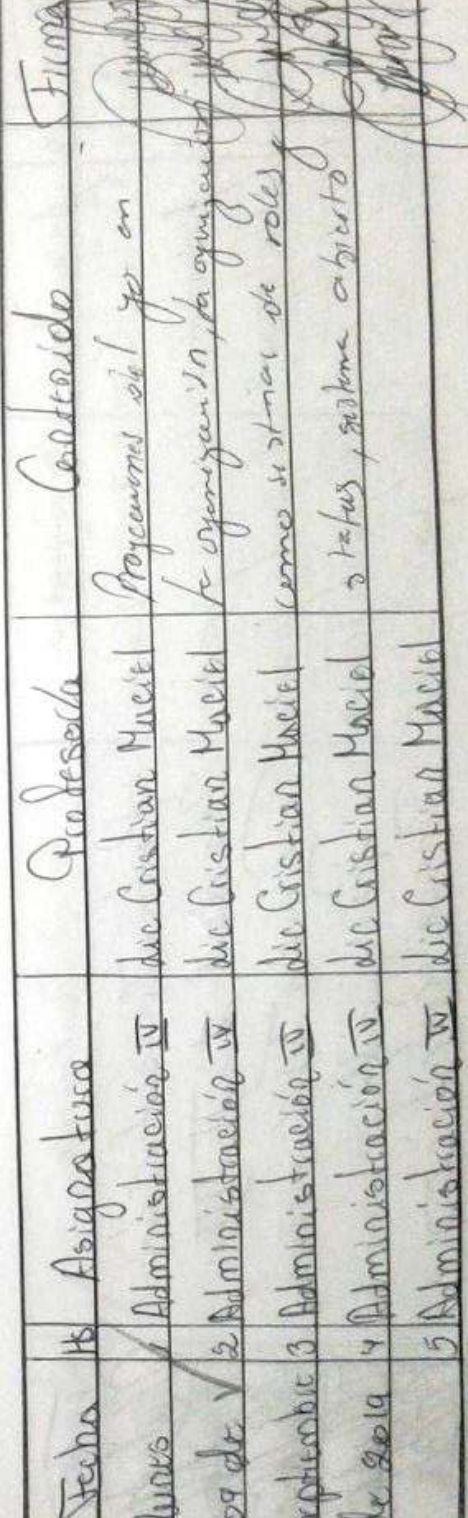 Fecha Hs Asignatura Profesor/a Contenido Firma
Lunes 1 Administración IV Lic Cristian Maciel Proyecciones del yo en
09 de 2 Administración IV Lic Cristian Maciel la organización, la organización
septiembre 3 Administración IV Lic Cristian Maciel como sistemas de roles y
de 2019 4 Administración IV Lic Cristian Maciel status, sistema abierto
5 Administración IV Lic Cristian Maciel